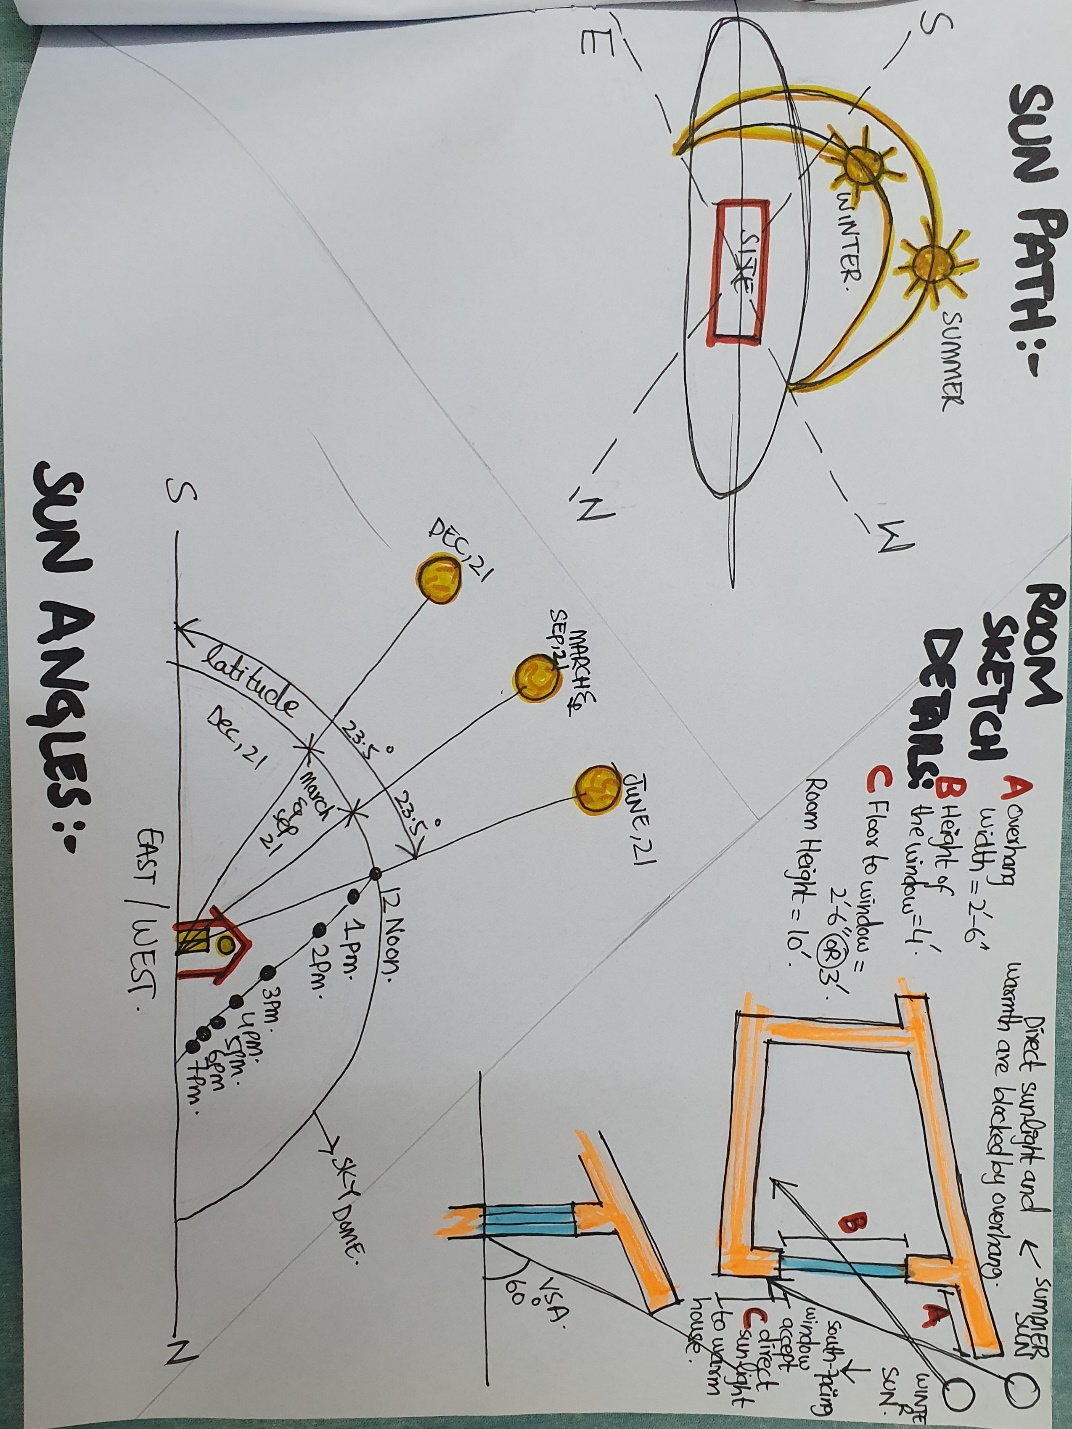 SUN PATH:-
S
E
W
N
WINTER.
SUMMER
SITE
ROOM
SKETCH
DETAILS:
A overhang
width = 2'-6"
B Height of
the window = 4'.
C Floor to window =
2'-6" OR 3'.
Room Height = 10'.
Direct sunlight and
warmth are blocked by overhang.
SUMMER
SUN
WINTE
R
SUN.
A
B
C
south-facing
window
accept
direct
sunlight
to warm
house.
VSA.
60°
SUN ANGLES:-
DEC, 21
MARCH &
SEP, 21
JUNE, 21
latitude
23.5°
23.5°
Dec, 21
March
& Sep
21
12 Noon.
1 pm.
2 pm.
3 pm.
4 pm.
5 pm.
6 pm
7 pm.
SKY DOME.
S
N
EAST / WEST.